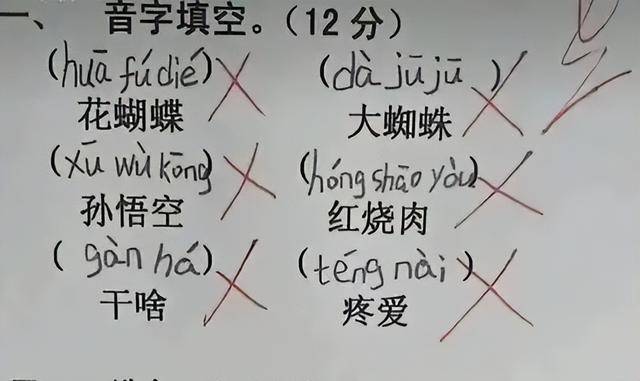 一、音字填空。(12分)
(huā fú dié) (dà jū jū)
花蝴蝶 大蜘蛛
(xū wù kōng) (hóng shāo yòu)
孙悟空 红烧肉
(gàn há) (téng nài)
干啥 疼爱